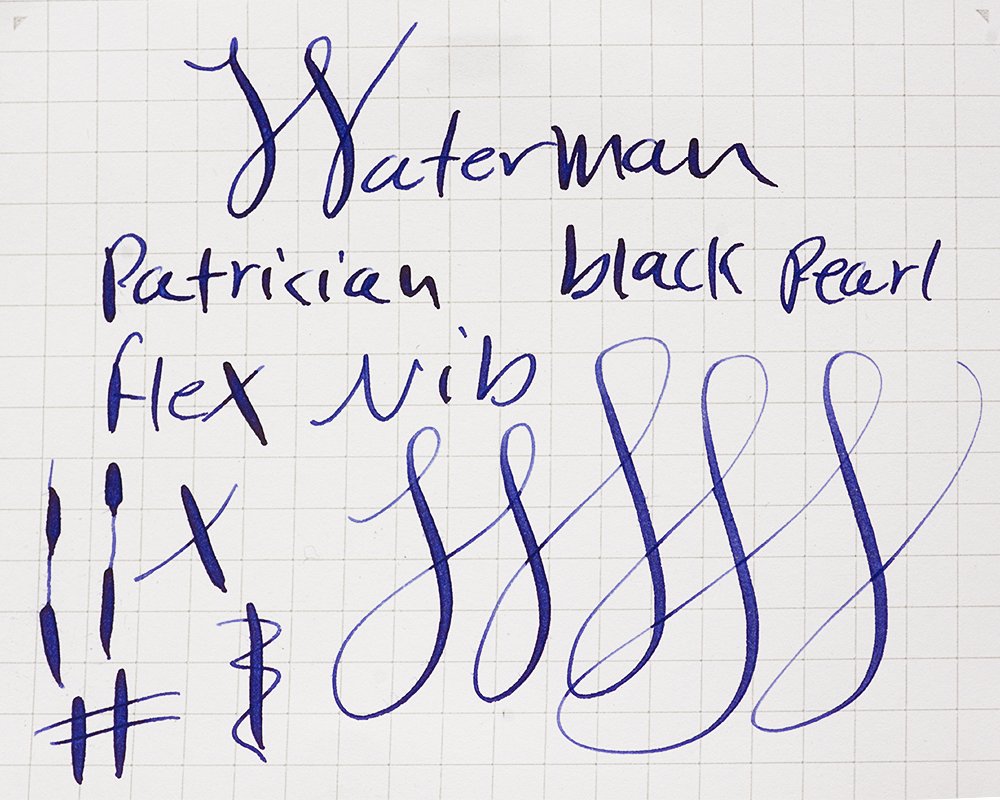 Waterman
Patrician black Pearl
flex Nib
X
#